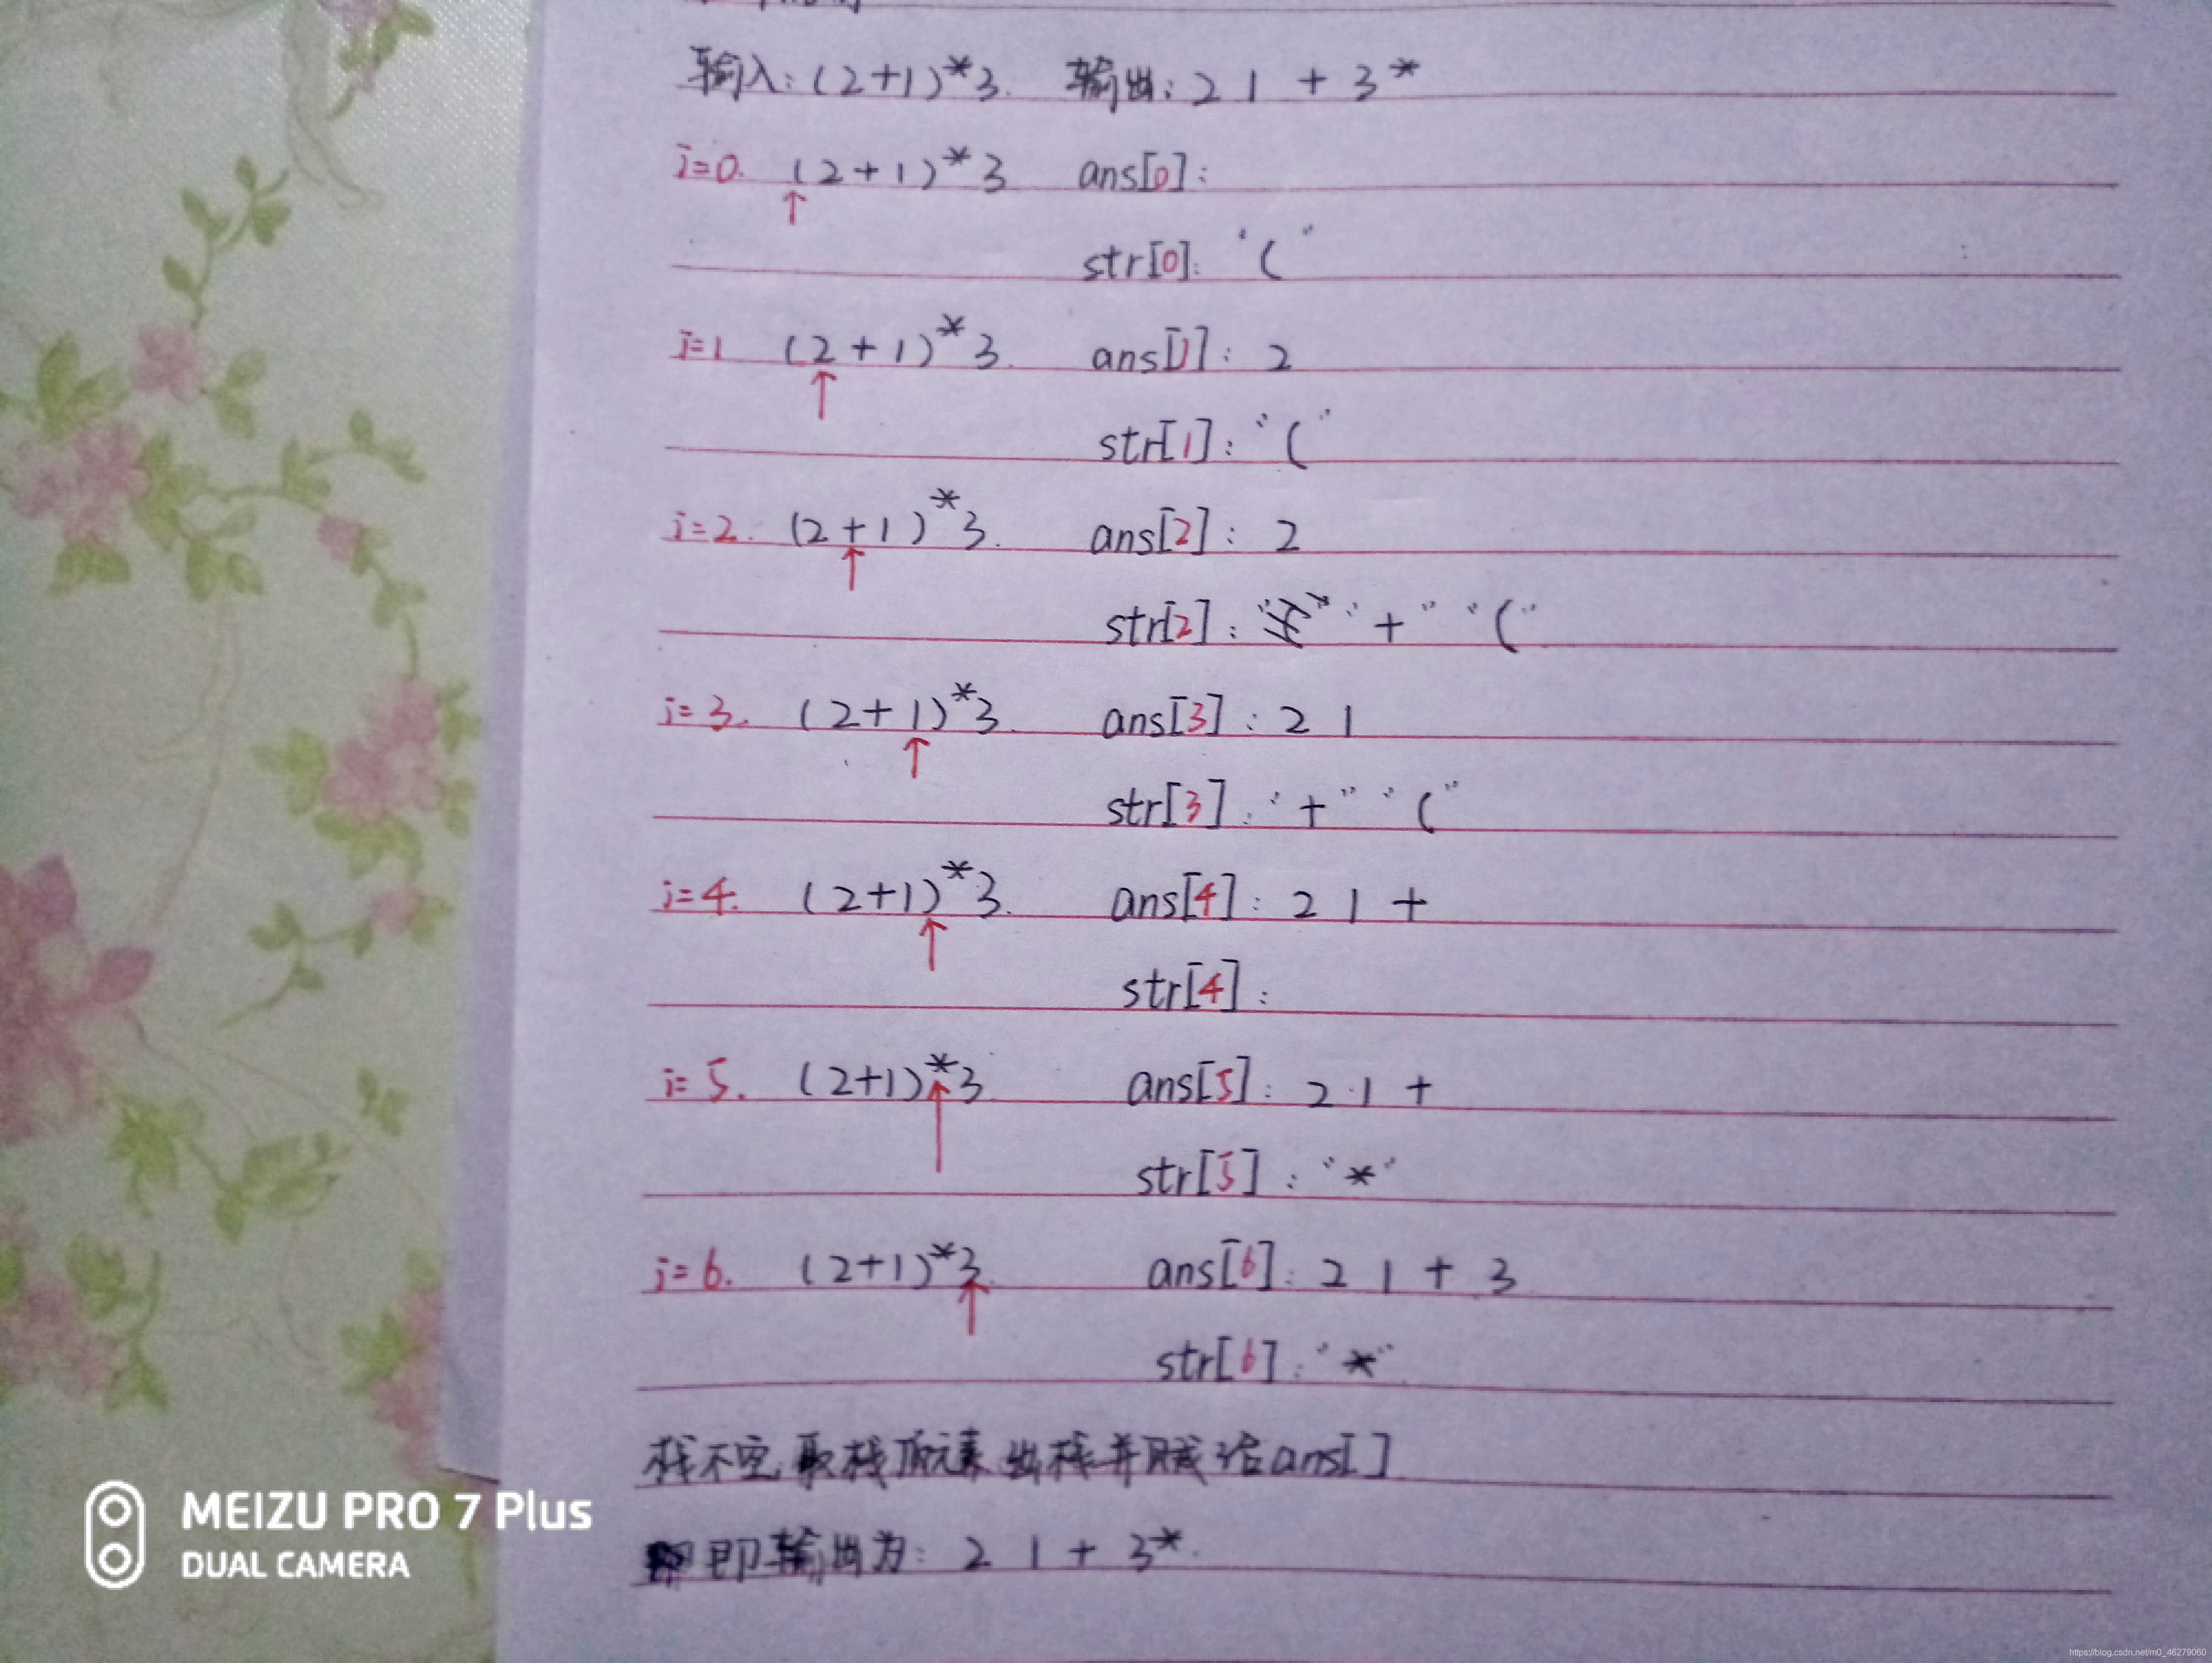 输入:(2+1)*3. 输出:2 1 + 3*
i=0. (2+1)*3 ans[0]:
↑
str[0]: "("
i=1 (2+1)*3. ans[1]: 2
↑
str[1]: "("
i=2. (2+1)*3. ans[2]: 2
↑
str[2]: "+" "("
i=3. (2+1)*3. ans[3]: 2 1
↑
str[3]: "+" "("
i=4. (2+1)*3. ans[4]: 2 1 +
↑
str[4]:
i=5. (2+1)*3 ans[5]: 2 1 +
↑
str[5]: "*"
i=6. (2+1)*3. ans[6]: 2 1 + 3
↑
str[6]: "*"
栈不空,取栈顶元素,出栈并赋给ans[]
即输出为: 2 1 + 3*.
MEIZU PRO 7 Plus
DUAL CAMERA
https://blog.csdn.net/m0_46279060